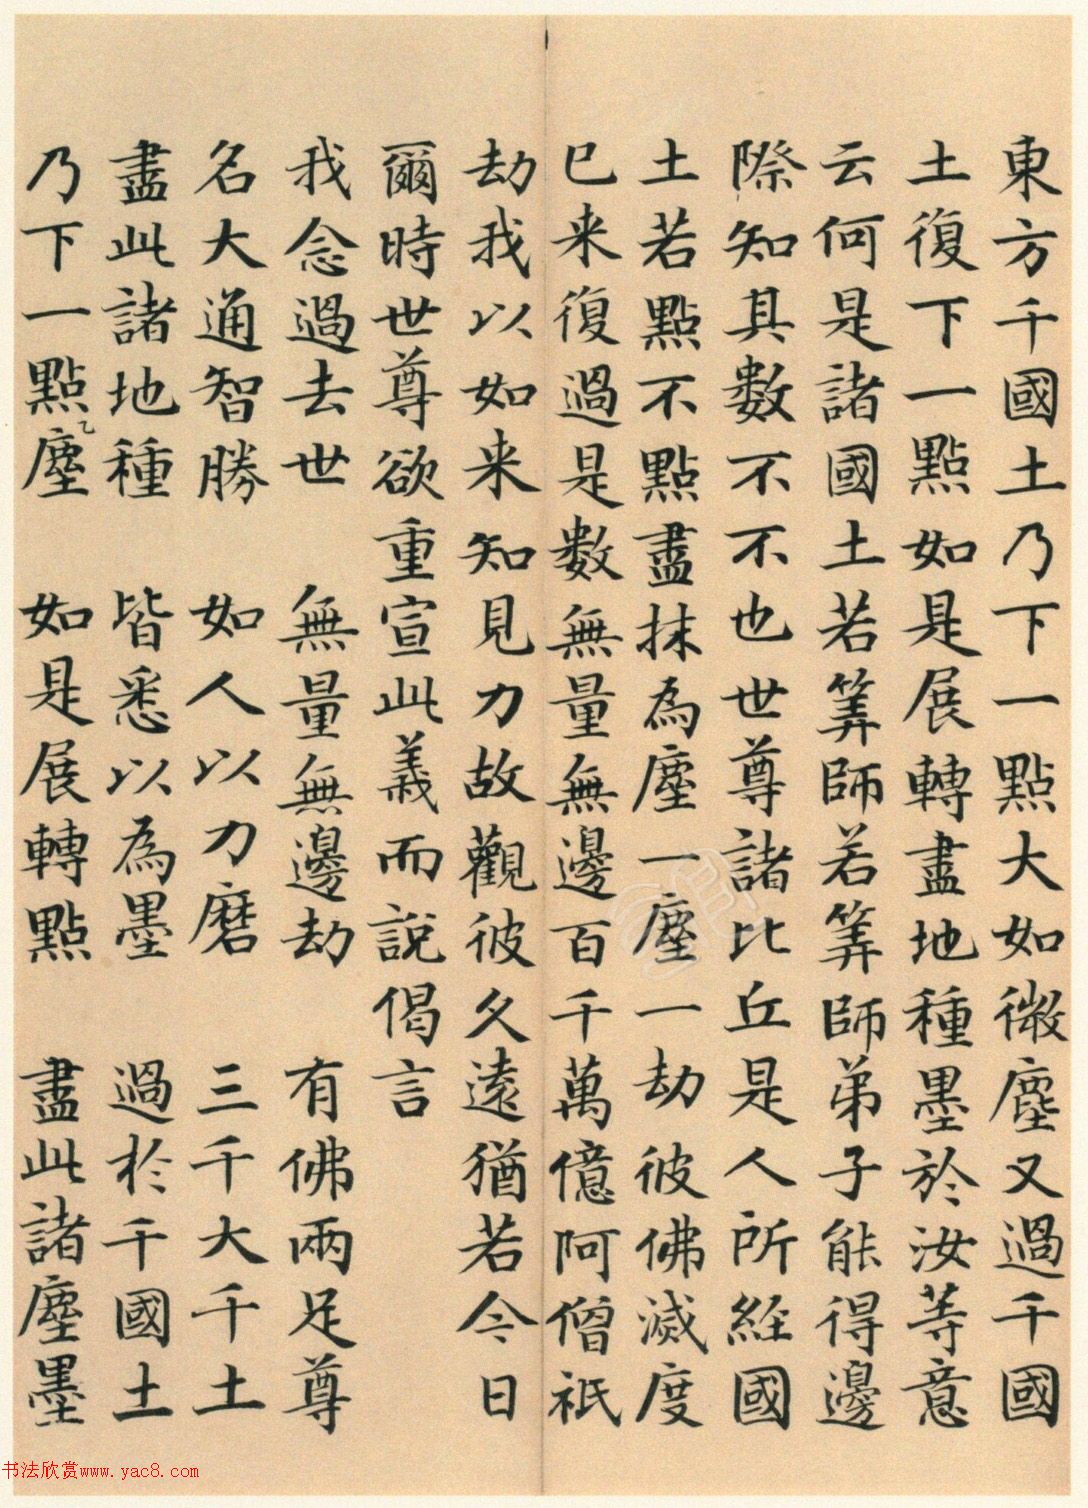 東方千國土乃下一點大如微塵又過千國
土復下一點如是展轉盡地種墨於汝等意
云何是諸國土若筭師若筭師弟子能得邊
際知其數不不也世尊諸比丘是人所經國
土若點不點盡抹為塵一塵一劫彼佛滅度
已来復過是數無量無邊百千萬億阿僧祇
劫我以如来知見力故觀彼久遠猶若今日
爾時世尊欲重宣此義而說偈言
我念過去世 無量無邊劫 有佛兩足尊
名大通智勝 如人以力磨 三千大千土
盡此諸地種 皆悉以為墨 過於千國土
乃下一點塵乙 如是展轉點 盡此諸塵墨
书法欣赏www.yac8.com